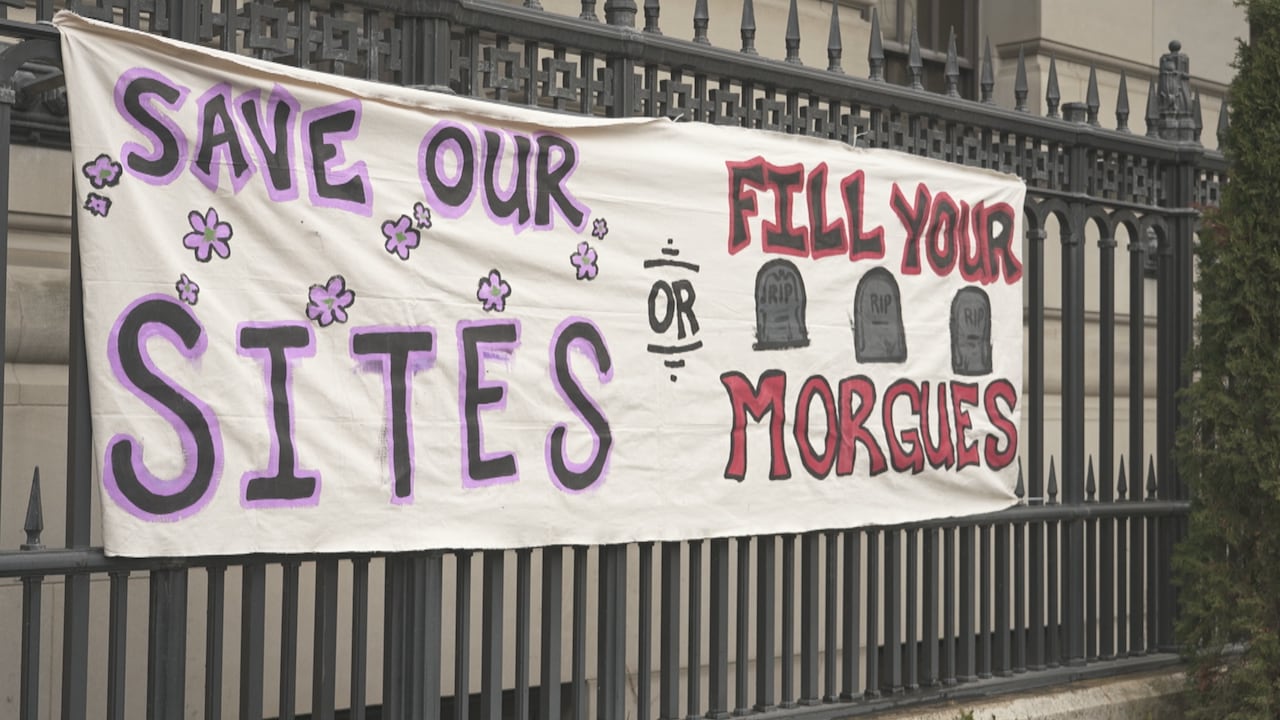 SAVE OUR
SITES
OR
FILL YOUR
RIP RIP RIP
MORGUES